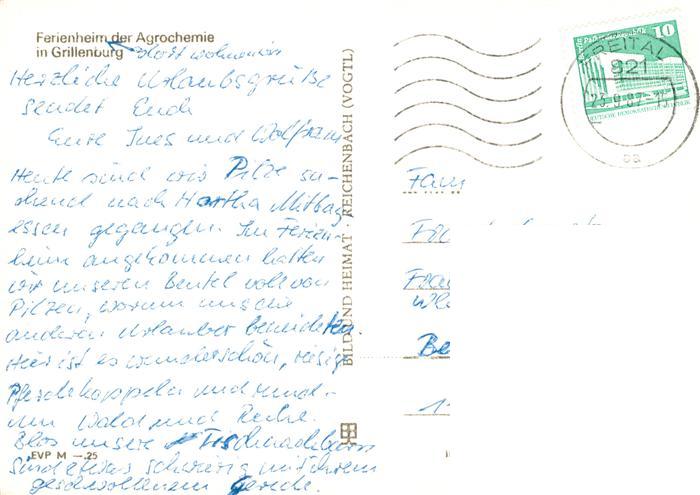 Ferienheim der Agrochemie
in Grillenburg dort wohnen wir
Herzliche Urlaubsgrüße
sendet Euch
Eure Ines und Wolfram
Heute sind wir Pilze su-
chend nach Hartha Mittag
essen gegangen. Im Ferien-
heim angekommen hatten
wir unseren Beutel voll von
Pilzen, worum uns die
anderen Urlauber beneideten.
Hier ist es wunderschön, riesige
Pferdekoppeln und rund-
um Wald und Ruhe.
Blos unsere Tischnachbarn
EVP M —.25
sind etwas schwierig mit ihrem
geschwollenen Gerede.
BILD UND HEIMAT · REICHENBACH (VOGTL)
10
FREITAL
821
DEUTSCHE DEMOKRATISCHE REPUBLIK
Fam
Be